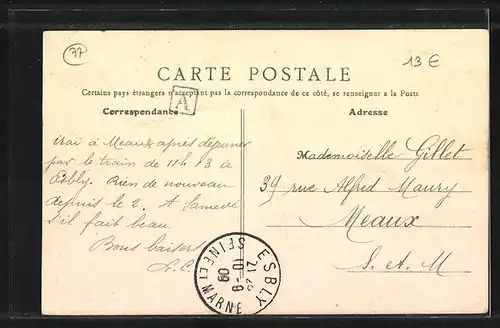 77
13 €
CARTE POSTALE
Certains pays étrangers n'acceptant pas la correspondance de ce côté, se renseigner à la Poste
A
Correspondance
Adresse
irai à Meaux après déjeuner
par le train de 11h 13 à
Esbly. Rien de nouveau
depuis le 2. A Samedi
s'il fait beau.
Bons baisers
A.C.
Mademoiselle Gillet
39 rue Alfred Maury
Meaux
S. et M
ESBLY
SEINE ET MARNE